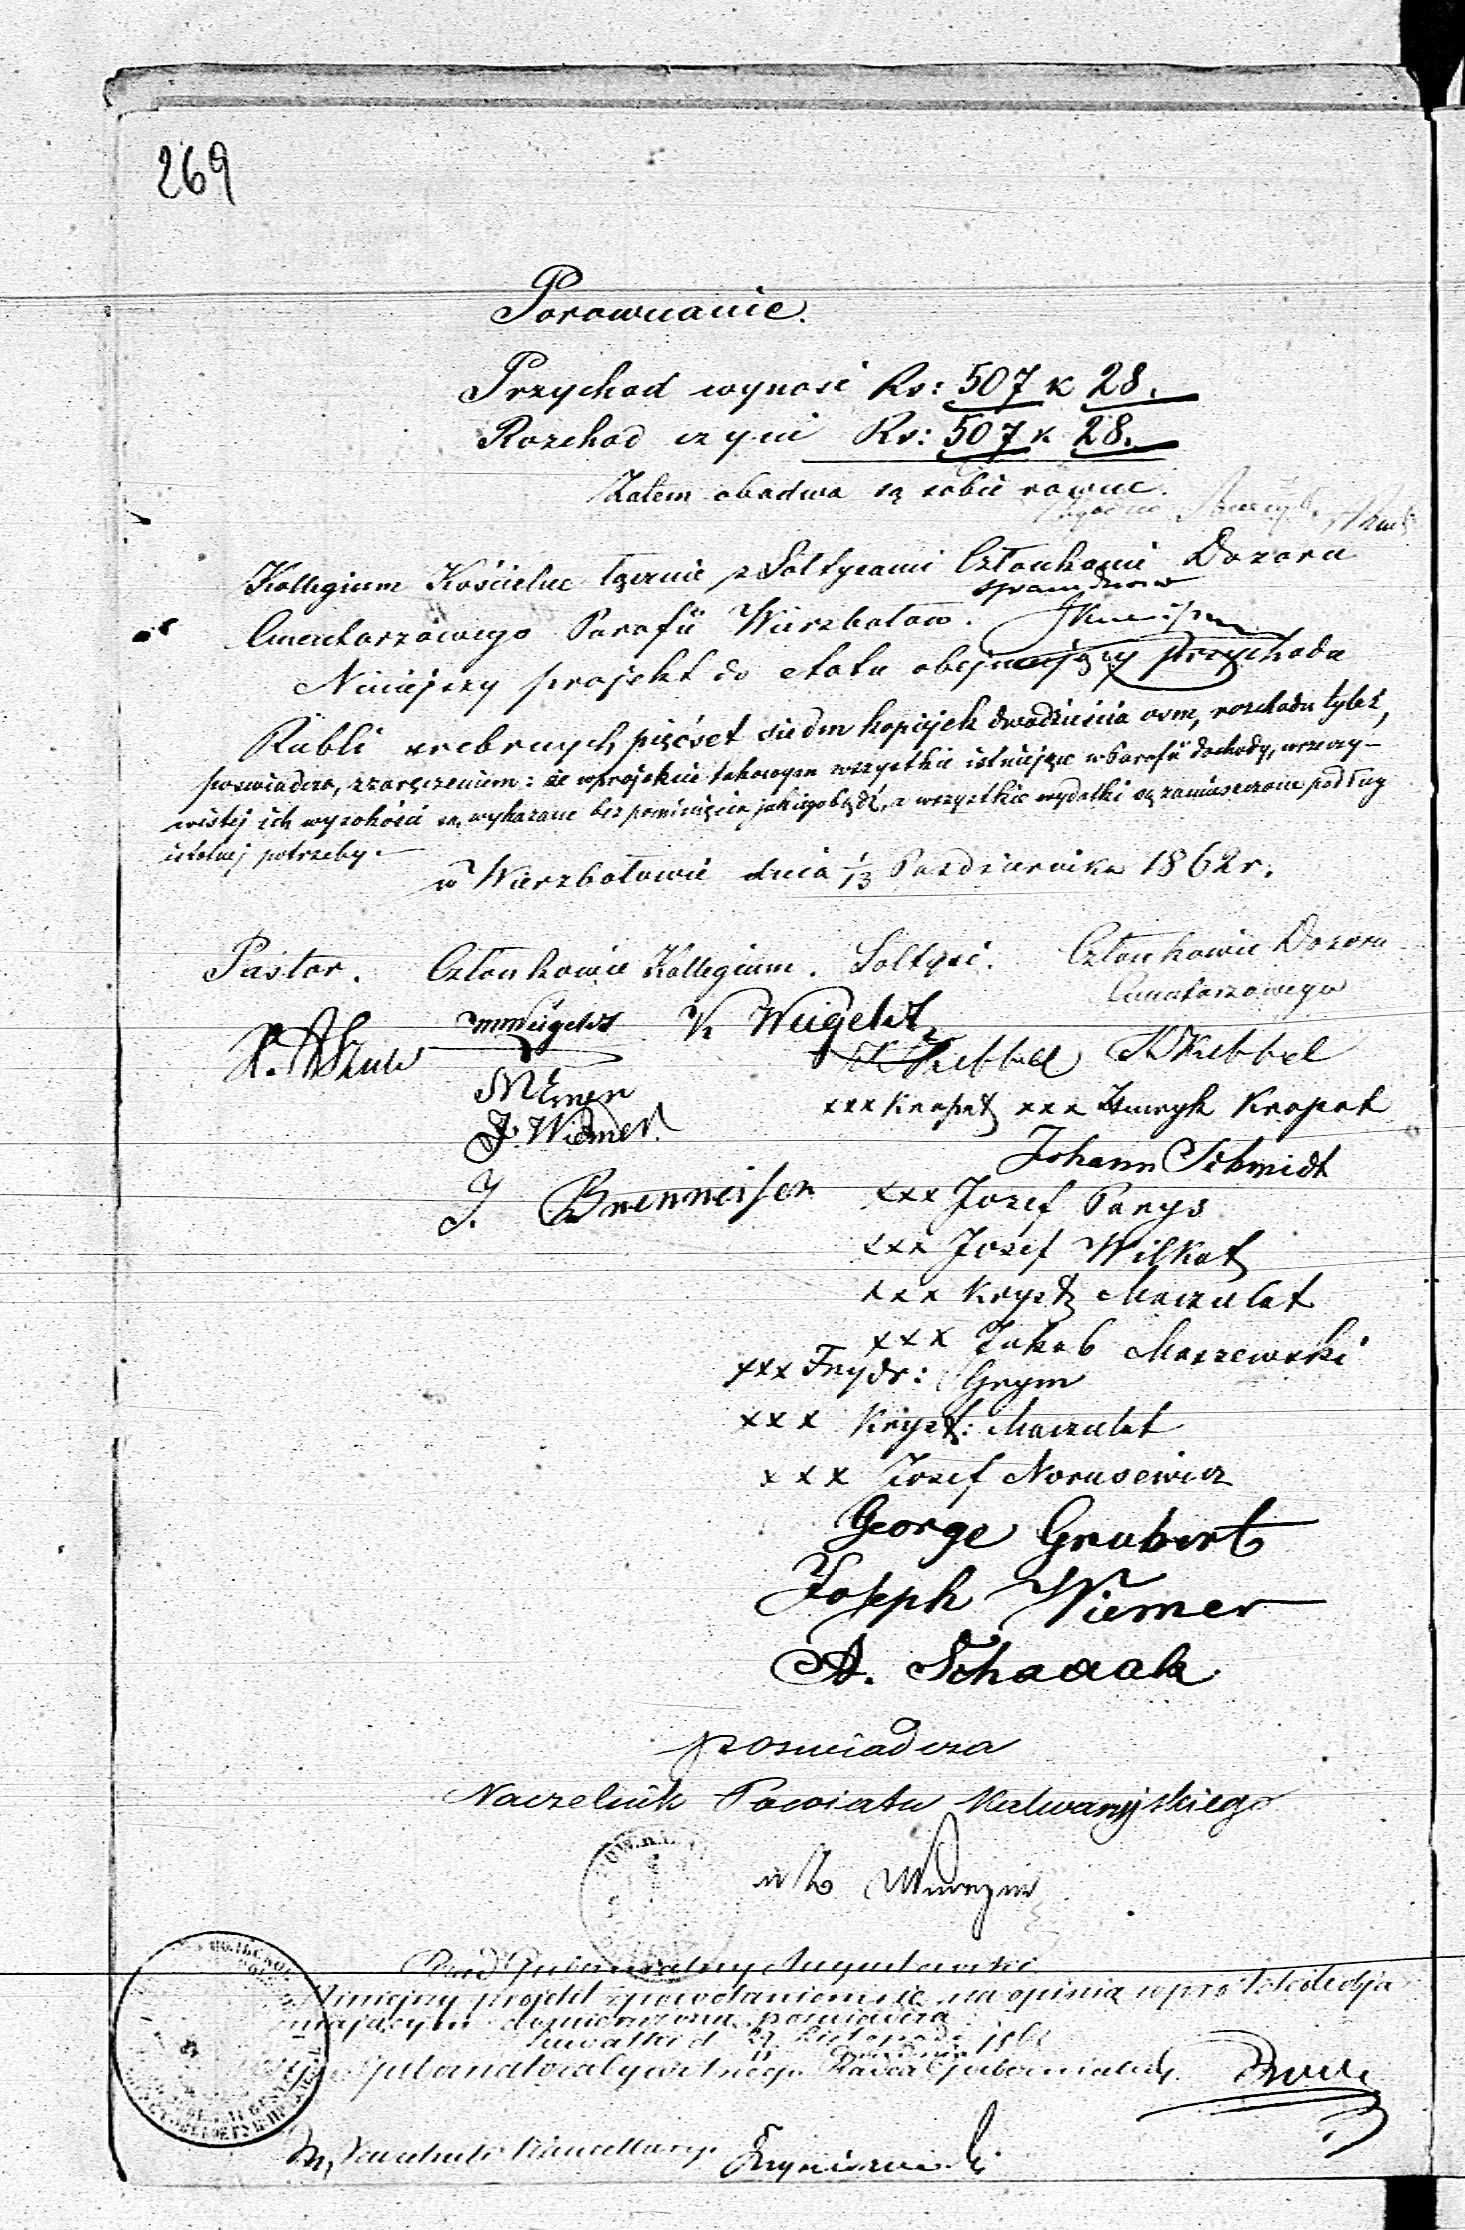 269
Porownanie.
Przychod wynosi Rs: 507 k 28.
Rozchod czyni Rs: 507 k 28.
Zatem obadwa są sobie rowne.
Kollegium Kościelne łącznie z Sołtysami Członkami Dozoru
sprawdzono
Cmentarzowego Parafii Wierzbołow.
Niniejszy projekt do etatu obejmujący przychodu
Rubli srebrnych pięćset siedm kopiejek dwadzieścia osm, rozchodu tyleż,
poswiadcza, z zaręczeniem: że w projekcie takowym wszystkie istniejące w Parafii dochody, w rzeczy-
wistej ich wysokości są wykazane bez pominięcia jakiegobądź, a wszystkie wydatki są zamieszczone podług
istotnej potrzeby.
w Wierzbołowie dnia 1/13 Pazdziernika 1862 r.
Pastor. Członkowie Kollegium. Sołtysi. Członkowie Dozoru
Cmentarzowego
Weigelt K Weigelt
K Kiebbel Kiebbel
J. Wiemer.
xxx Kropat xxx Henryk Kropat
Johann Schmidt
J. Brenneisen xxx Jozef Parys
xxx Jozef Wilkat
xxx Kryszt Maczulat
xxx Jakob Maszewski
xxx Frydr: Grym
xxx Kryszt: Maczulat
xxx Jozef Norusewicz
George Grubert
Joseph Wiemer
A. Schaak
poswiadcza
Naczelnik Powiatu Kalwaryjskiego
Rząd Gubernialny Augustowski
Niniejszy projekt z powołaniem się na opinią w protokole obja
poswiadcza
Suwałki d
Radca Gubernialny
Naczelnik Kancellaryi